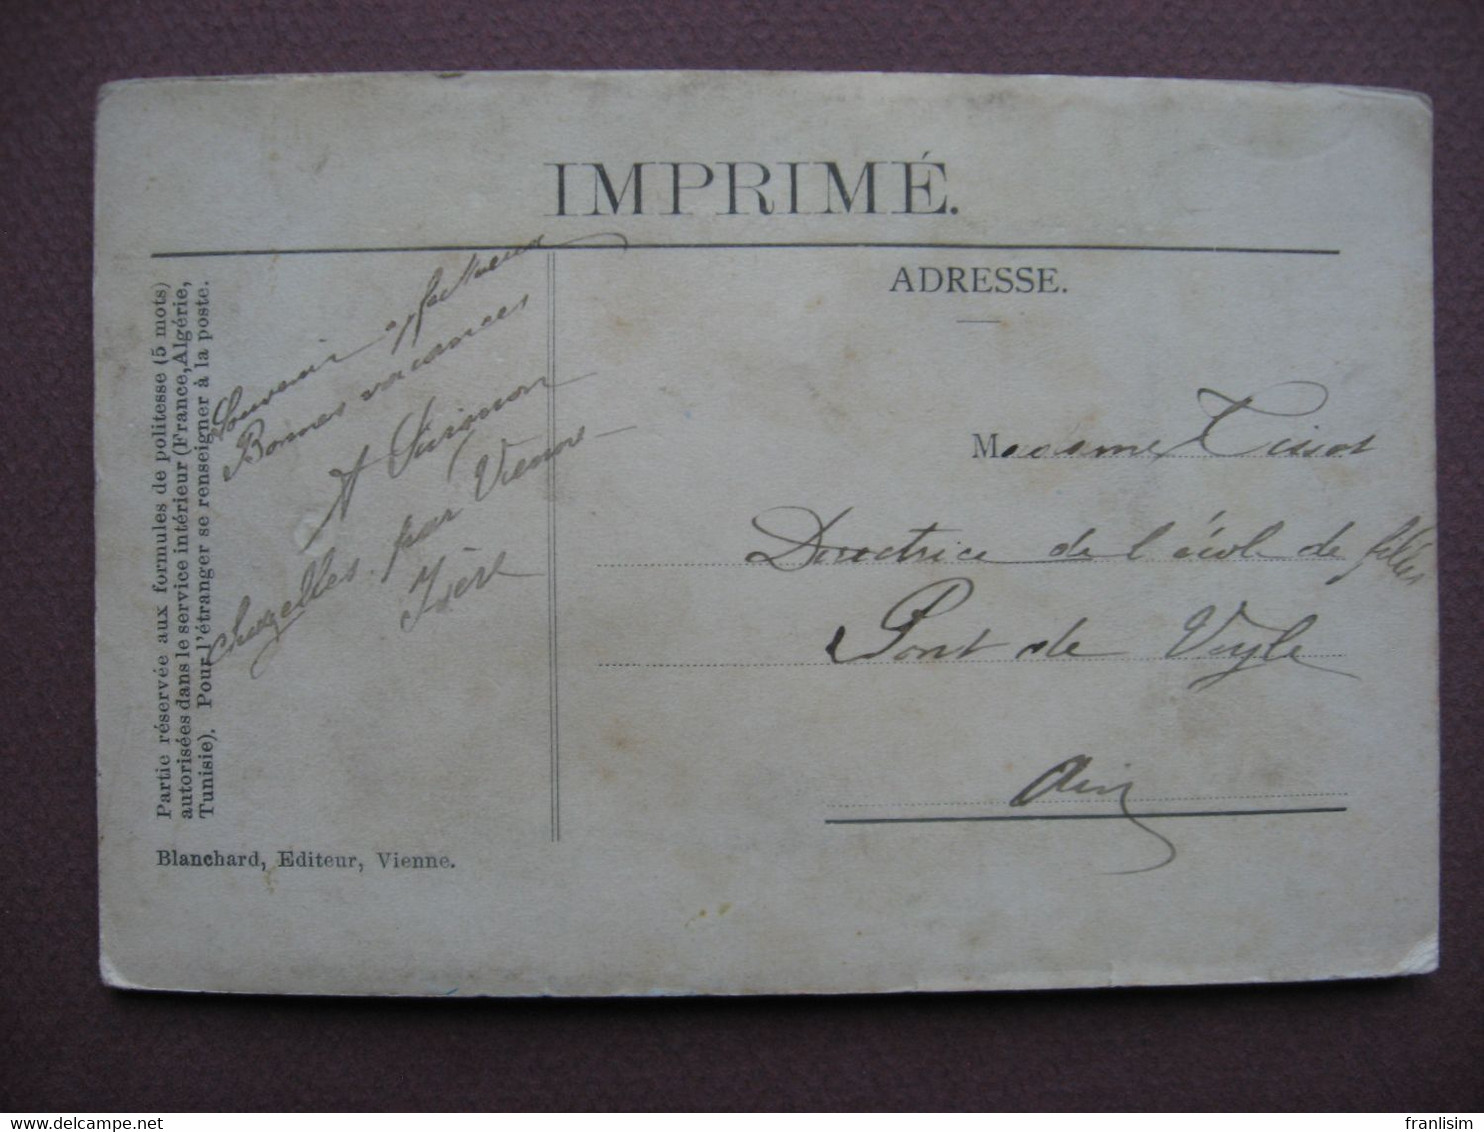 IMPRIMÉ.
Partie réservée aux formules de politesse (5 mots)
autorisées dans le service intérieur (France, Algérie,
Tunisie). Pour l'étranger se renseigner à la poste.
Souvenir affectueux
Bonnes vacances
A
par Vienne
Isère
Blanchard, Editeur, Vienne.
ADRESSE.
Madame Tissot
Directrice de l'école de filles
Pont de Veyle
Ain
delcampe.net
franlisim